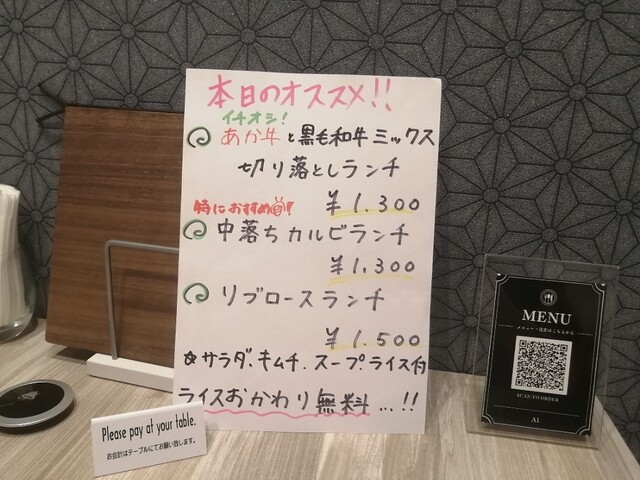 本日のオススメ!!
イチオシ!
あか牛と黒毛和牛ミックス
切り落としランチ
¥1.300
特におすすめ!
中落ちカルビランチ
¥1.300
リブロースランチ
¥1.500
サラダ、キムチ、スープ、ライス付
ライスおかわり無料...!!
Please pay at your table.
お会計はテーブルにてお願い致します。
MENU
メニュー・注文はこちらから
SCAN TO ORDER
A1